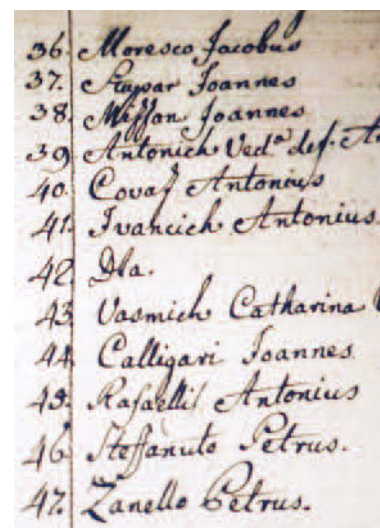 36. Moresco Jacobus
37. Stypar Joannes
38. Misson Joannes
39. Antonich Ved.ª def.
40. Covaz Antonius
41. Ivancich Antonius
42. Dla.
43. Vasmich Catharina
44. Calligari Joannes
45. Rafaelli Antonius
46. Steffanuto Petrus.
47. Zanello Petrus.